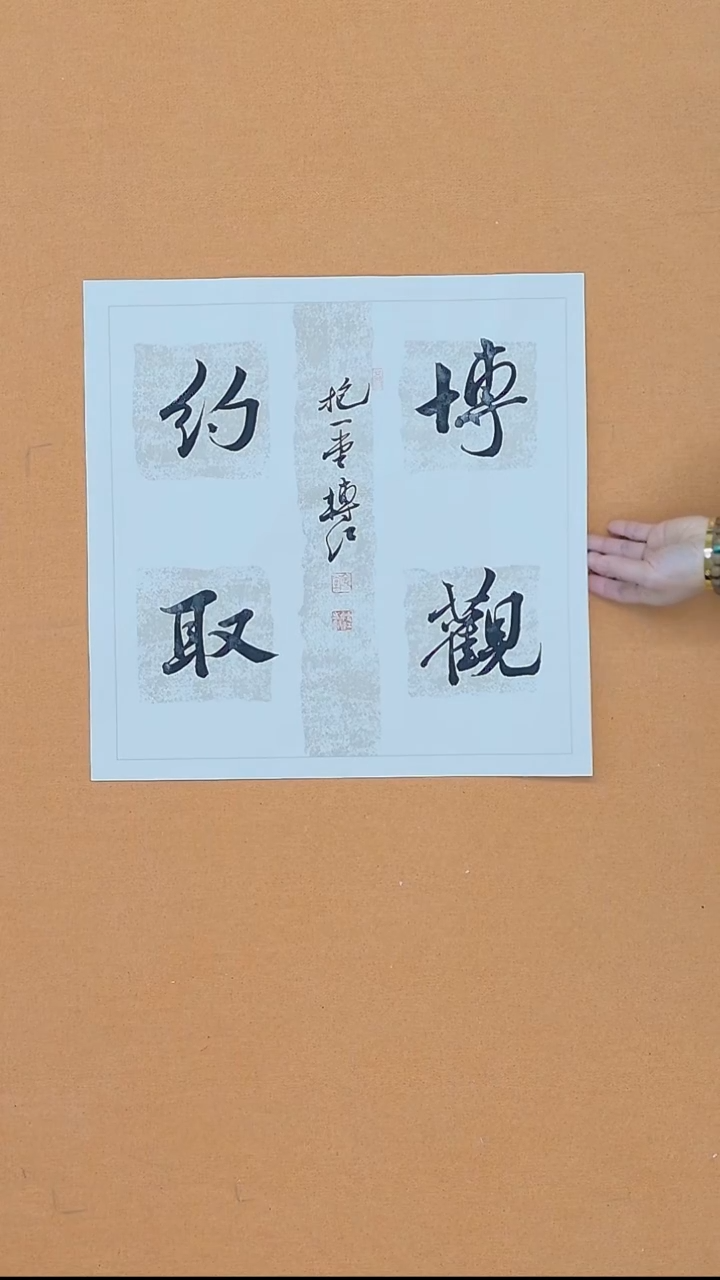 博觀
約取
抱一堂